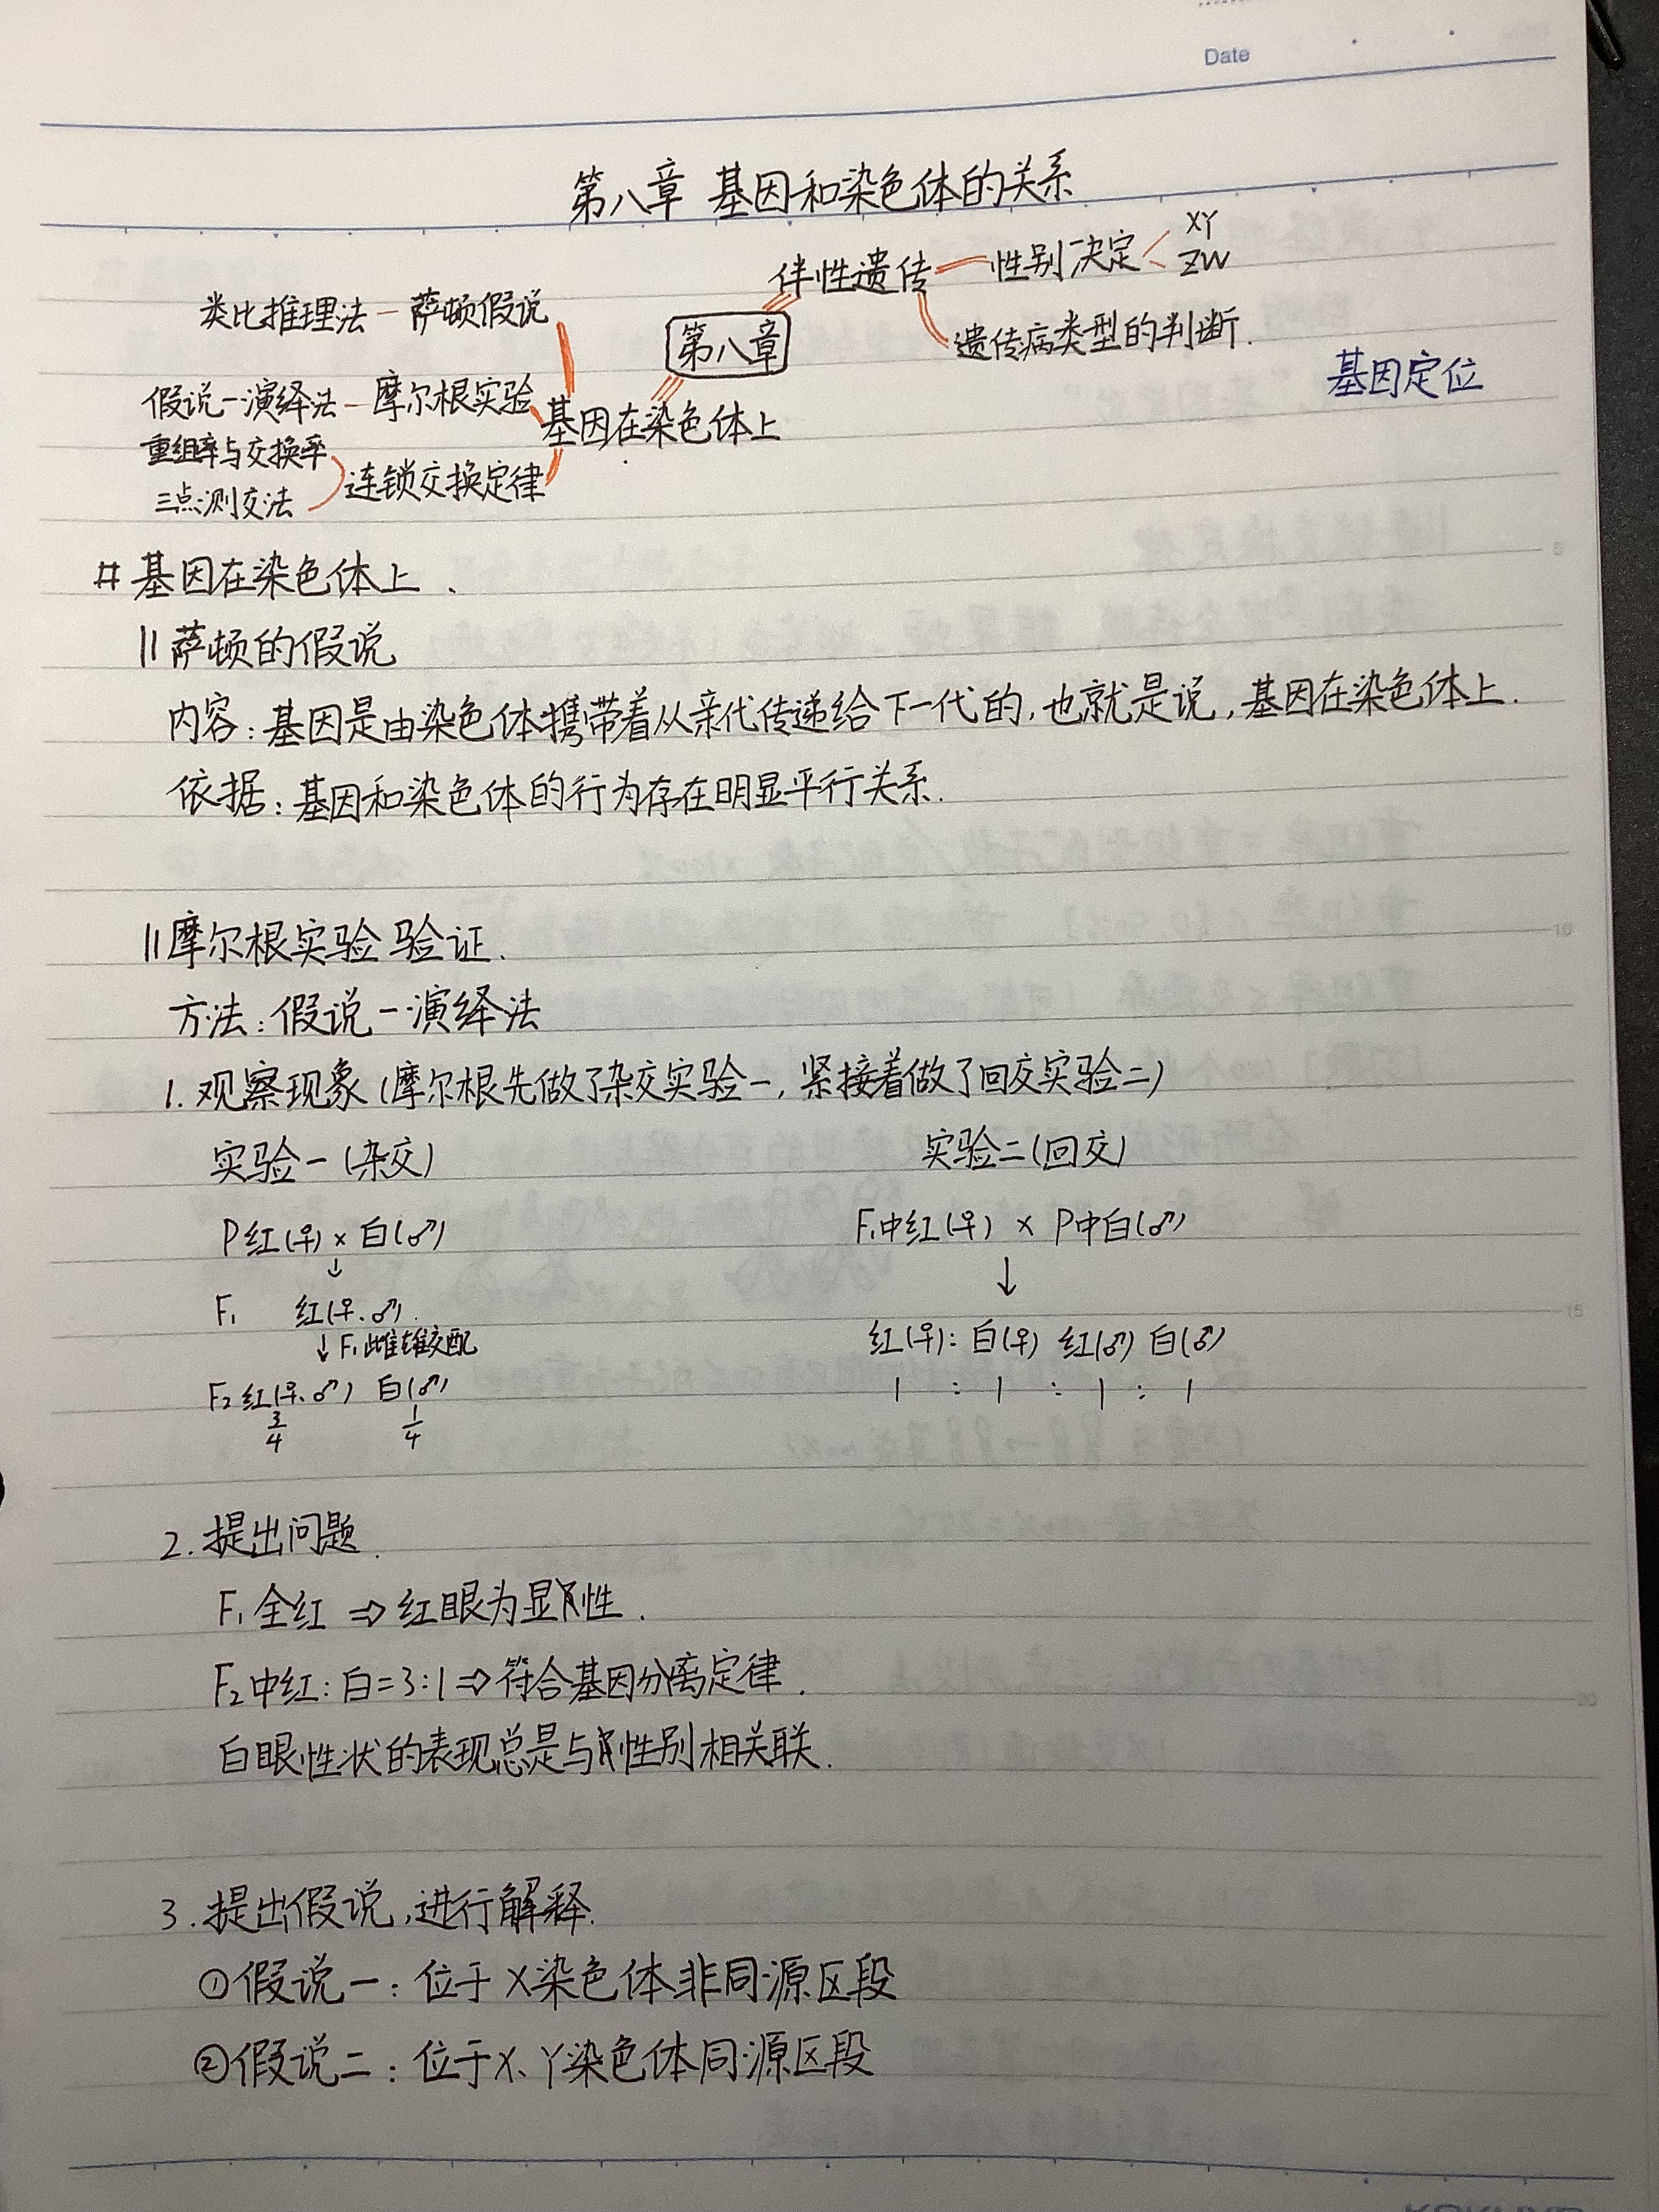 Date
第八章 基因和染色体的关系
伴性遗传 性别决定 XY
ZW
类比推理法 - 萨顿假说
第八章
遗传病类型的判断.
基因定位
假说-演绎法 - 摩尔根实验
基因在染色体上
重组率与交换率
三点测交法
连锁交换定律
# 基因在染色体上.
|| 萨顿的假说
内容:基因是由染色体携带着从亲代传递给下一代的,也就是说,基因在染色体上.
依据:基因和染色体的行为存在明显平行关系.
|| 摩尔根实验验证.
10
方法:假说-演绎法
1. 观察现象(摩尔根先做了杂交实验一,紧接着做了回交实验二)
实验一(杂交) 实验二(回交)
P 红(♀) × 白(♂) F₁中红(♀) × P中白(♂)
↓ ↓
F₁ 红(♀.♂).
15
↓ F₁雌雄交配 红(♀): 白(♀) 红(♂) 白(♂)
F₂ 红(♀.♂) 白(♂) 1 : 1 : 1 : 1
3/4 1/4
2. 提出问题.
F₁全红 ⇒ 红眼为显性.
F₂中红:白=3:1 ⇒ 符合基因分离定律.
20
白眼性状的表现总是与性别相关联.
3. 提出假说,进行解释.
①假说一:位于X染色体非同源区段
②假说二:位于X、Y染色体同源区段